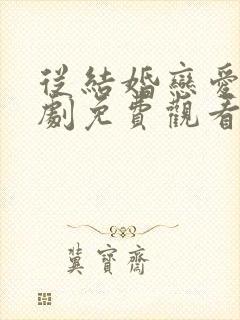 從結婚戀愛
劇免費觀看
冀寶齋